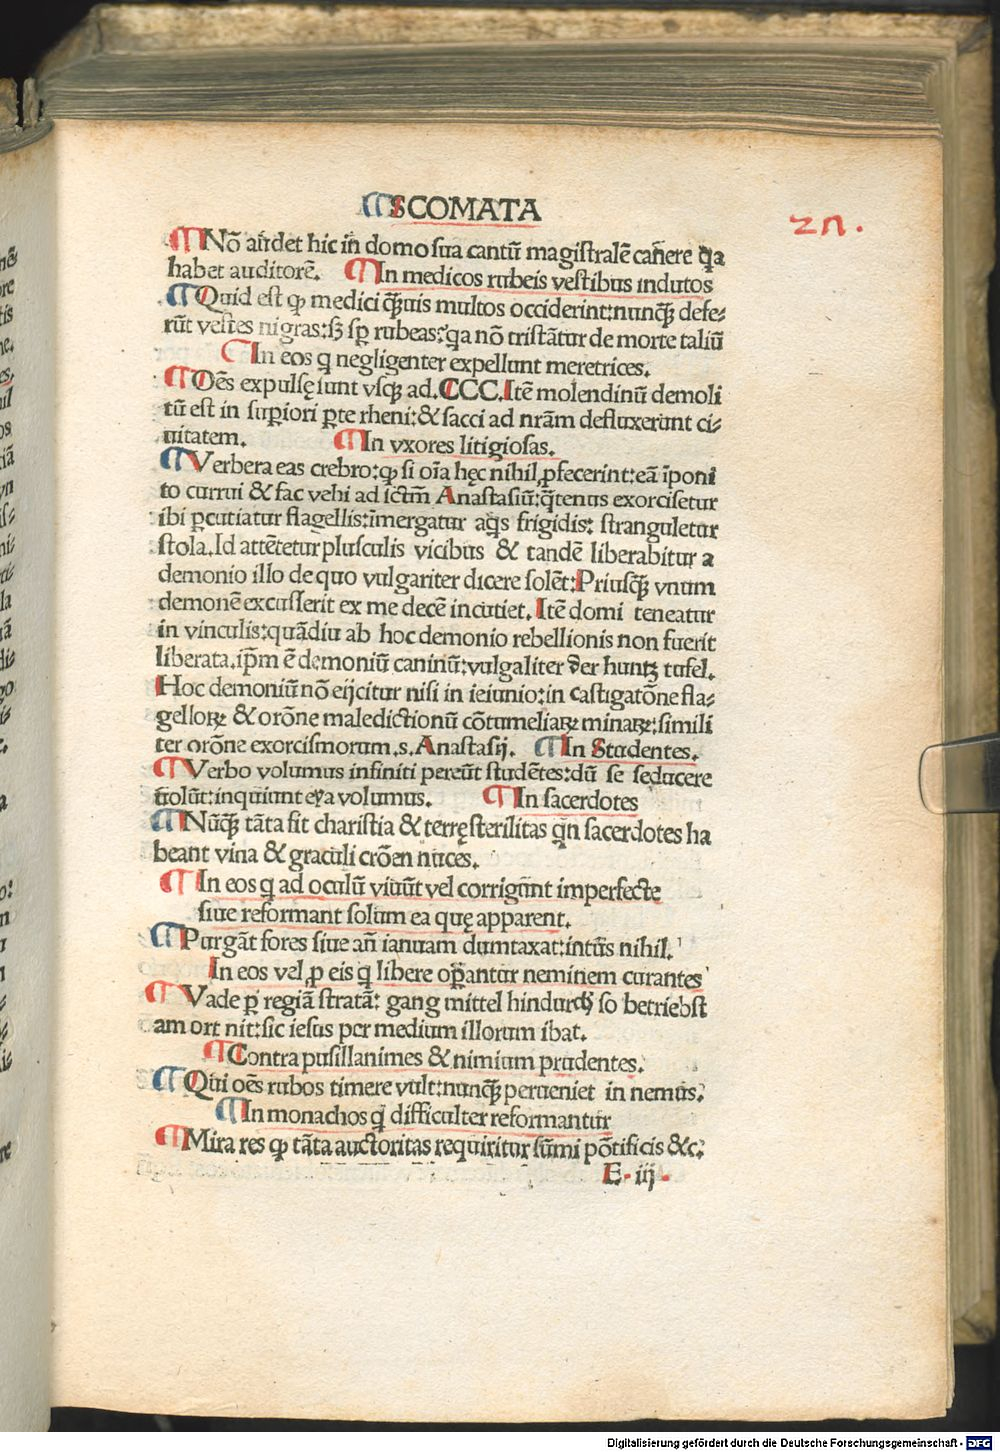 ¶SCOMATA
zn.
¶Nō audet hic in domo sua cantū magistralē canere qa
habet auditorē. ¶In medicos rubeis vestibus indutos
¶Quid est ꝙ medici q̄uis multos occiderint:nunq̄ꝫ defe⸗
rūt vestes nigras:sꝫ sꝑ rubeas:qa nō tristātur de morte taliū
¶In eos q negligenter expellunt meretrices.
¶Oēs expulsę sunt vsqꝫ ad.CCC.Itē molendinū demoli
tū est in suꝑiori ꝑte rheni:& sacci ad nrām defluxerunt ci⸗
uitatem. ¶In vxores litigiosas.
¶Verbera eas crebro:ꝙ si oīa hęc nihil ꝓfecerint:eā īponi
to currui & fac vehi ad sctm̄ Anastasiū:q̄tenus exorcisetur
ibi ꝑcutiatur flagellis:īmergatur aqs frigidis: stranguletur
stola.Id attētetur plusculis vicibus & tandē liberabitur a
demonio illo de quo vulgariter dicere solēt:Priusq̄ꝫ vnum
demonē excusserit ex me decē incutiet.Itē domi teneatur
in vinculis:quādiu ab hoc demonio rebellionis non fuerit
liberata.ip̄m ē demoniū caninū:vulgaliter der huntz tufel.
Hoc demoniū nō eijcitur nisi in ieiunio:in castigatōne fla⸗
gelloꝝ & orōne maledictionū cōtumeliaꝝ minaꝝ:simili
ter orōne exorcismorum.s.Anastasij. ¶In Studentes.
¶Verbo volumus infiniti pereūt studētes:dū se seducere
volūt:inquiunt eya volumus. ¶In sacerdotes
¶Nūq̄ꝫ tāta fit charistia & terrę sterilitas qn̄ sacerdotes ha
beant vina & graculi crōen nuces.
¶In eos q ad oculū viuūt vel corrigunt imperfecte
siue reformant solum ea quę apparent.
¶Purgāt fores siue an̄ ianuam dumtaxat:intus nihil.
In eos vel ꝓ eis q libere oꝑantur neminem curantes
¶Vade ꝑ regiā stratā: gang mittel hindurch so betriebst
am ort nit:sic iesus per medium illorum ibat.
¶Contra pusillanimes & nimium prudentes.
¶Qui oēs rubos timere vult:nunq̄ꝫ perueniet in nemus.
¶In monachos q difficulter reformantur
¶Mira res ꝙ tāta auctoritas requiritur sūmi pōtificis &c.
E·iij·
Digitalisierung gefördert durch die Deutsche Forschungsgemeinschaft - DFG